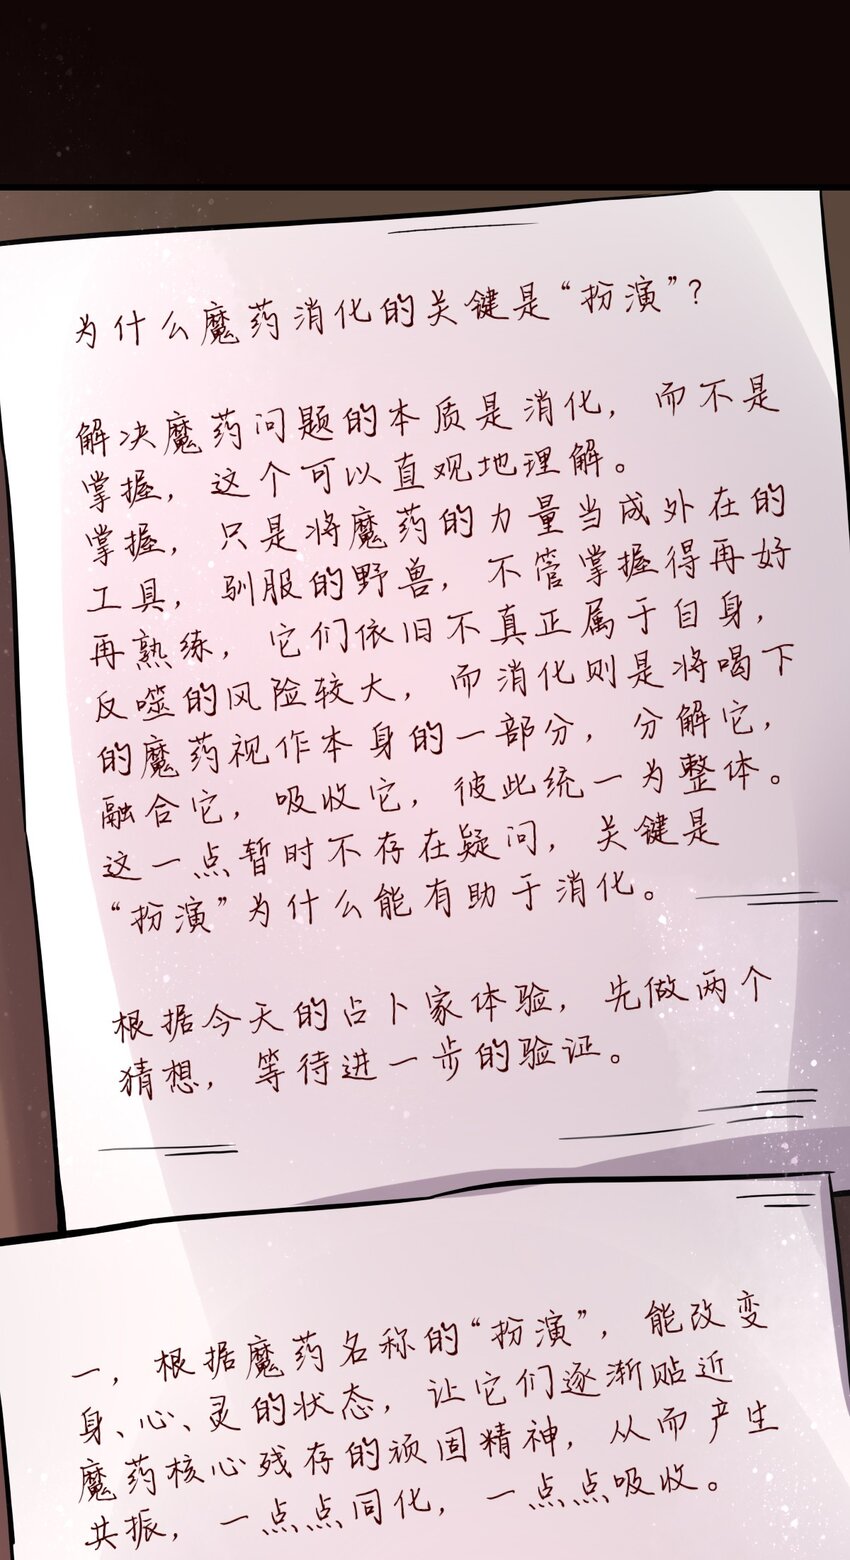 为什么魔药消化的关键是“扮演”？
解决魔药问题的本质是消化，而不是
掌握，这个可以直观地理解。
掌握，只是将魔药的力量当成外在的
工具，驯服的野兽，不管掌握得再好
再熟练，它们依旧不真正属于自身，
反噬的风险较大，而消化则是将喝下
的魔药视作本身的一部分，分解它，
融合它，吸收它，彼此统一为整体。
这一点暂时不存在疑问，关键是
“扮演”为什么能有助于消化。
根据今天的占卜家体验，先做两个
猜想，等待进一步的验证。
一，根据魔药名称的“扮演”，能改变
身、心、灵的状态，让它们逐渐贴近
魔药核心残存的顽固精神，从而产生
共振，一点点同化，一点点吸收。